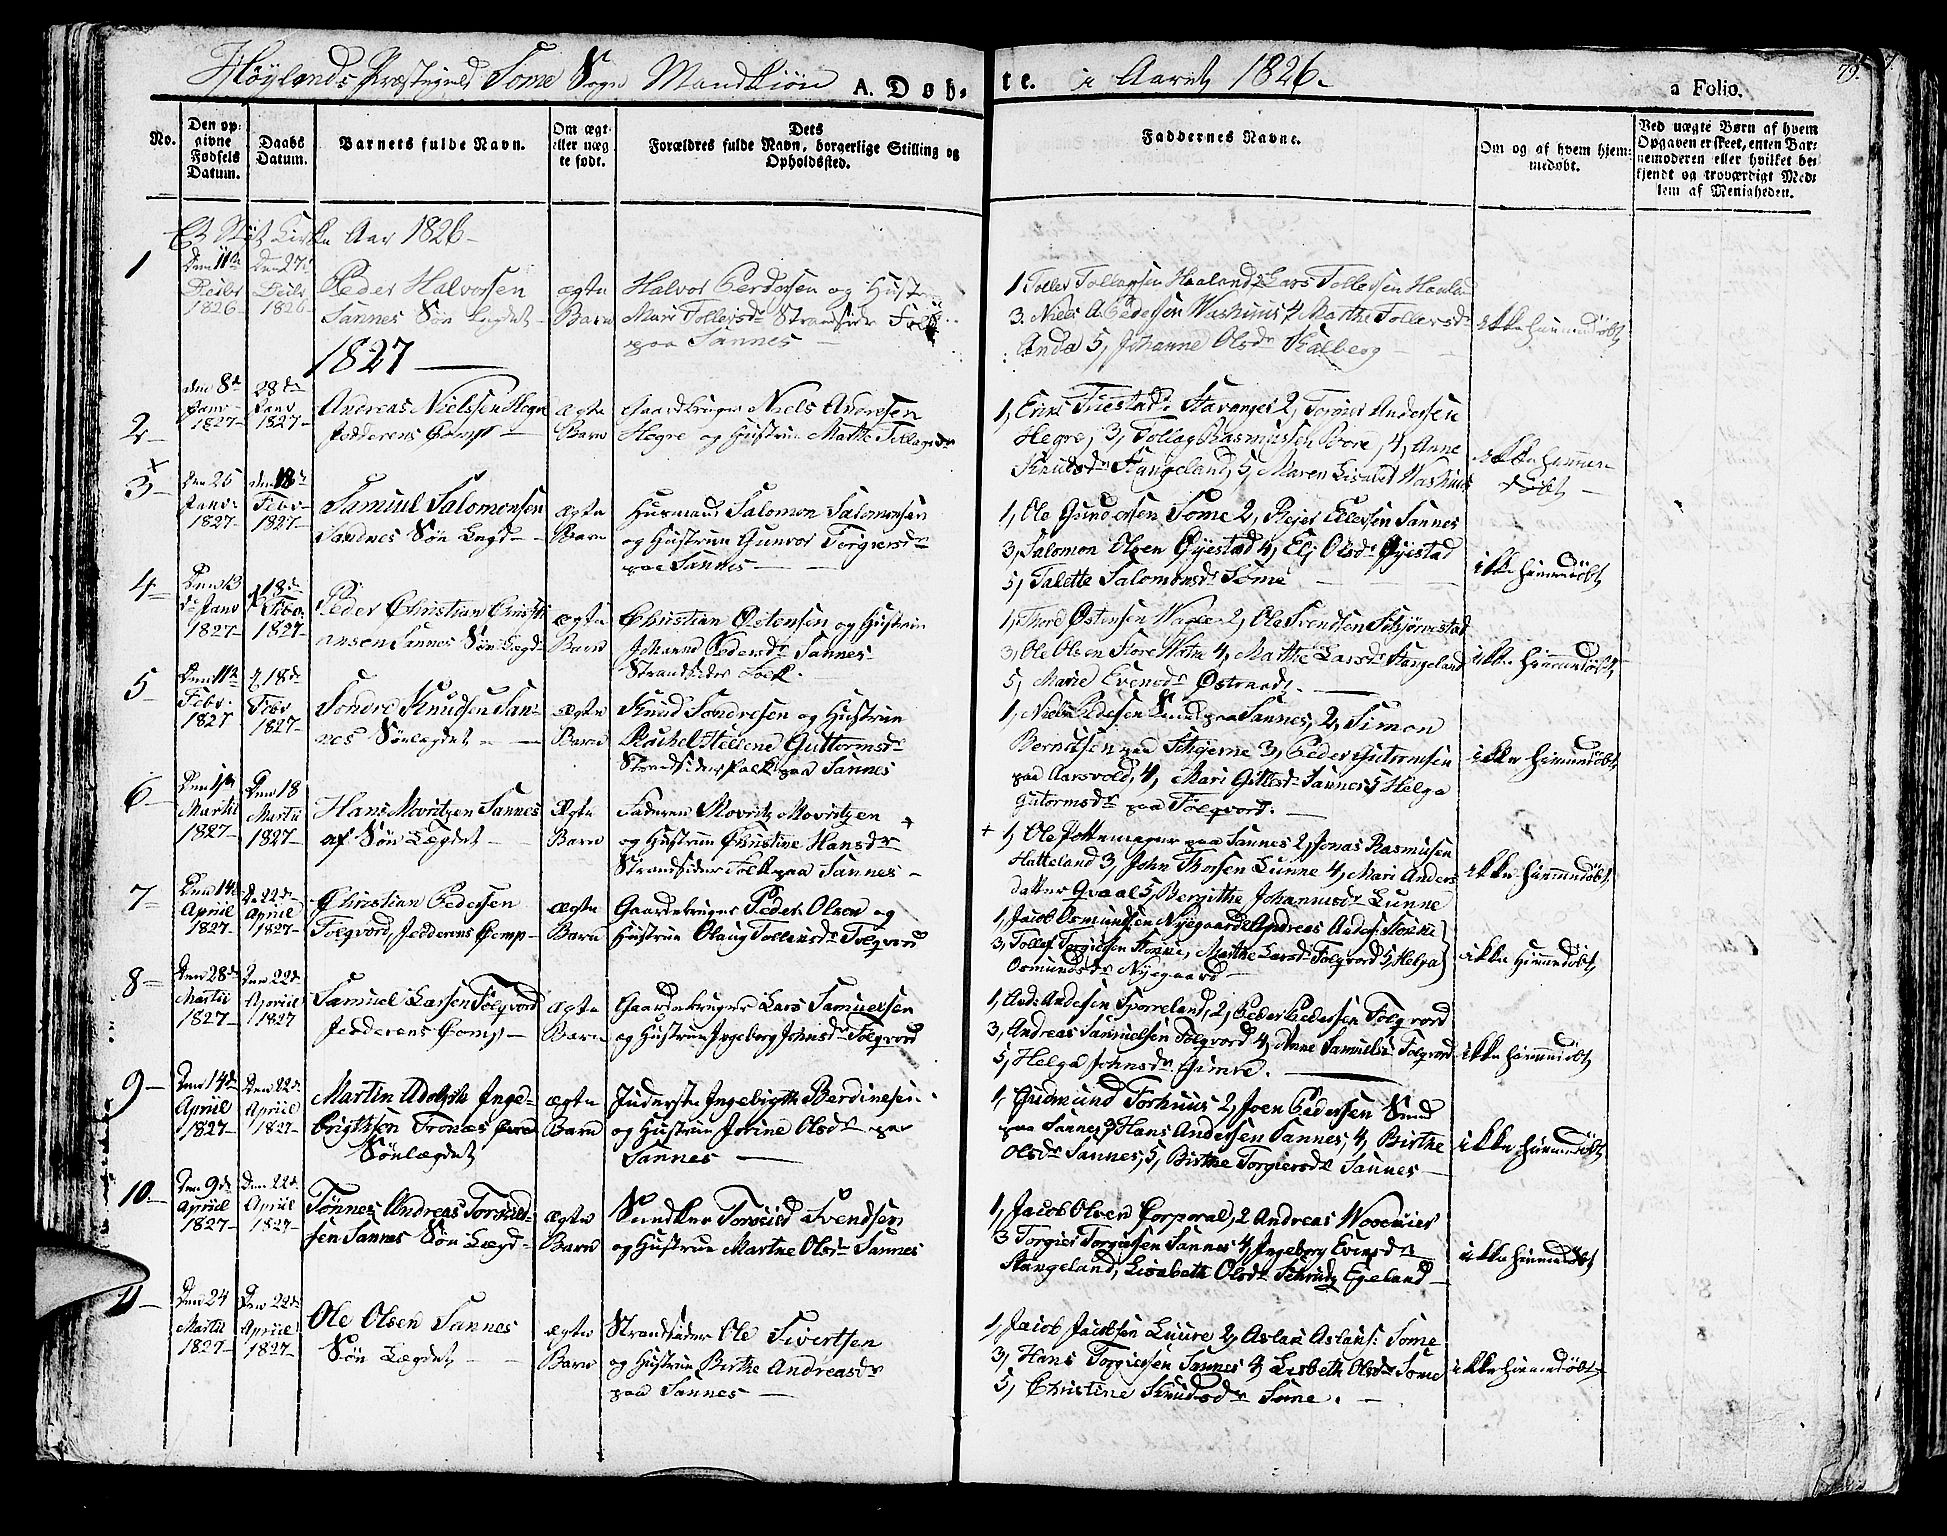 Høylands Præstegield Some Sogn Mandkiøn A. Døb- te. i Aaret 1826. 79.
a Folio.
No.
Den op-
givne
Fødsels
Datum.
Daabs
Datum.
Barnets fulde Navn.
Om ægt-
eller uæg-
te født.
Dets
Forældres fulde Navn, borgerlige Stilling og
Opholdssted.
Faddernes Navne.
Om og af hvem hjem-
medøbt.
Ved uægte Børn af hvem
Opgaven er skeet, enten Bar-
nemoderen eller hvilket be-
kjendt og troværdigt Med-
lem af Menigheden.
Kirke Aar 1826
1 Den 11te Decbr 1826 Den 27de Decbr 1826
Peder Halvorsen
Sannes Søn Legdet
ægte
Barn
Halvor Perdersen og Hustru
Mari Tollefsdr Strandsidder Folk
paa Sannes
1 Tollev Tollagsen Haaland 2 Lars Tollefsen Haaland
3. Niels A. Pedersen Washuus 4 Marthe Tollevsdr
Anda 5, Johanne Olsdr Kalberg
ikke hiemmedøbt
1827
2 den 8de Janr 1827 28de Janv 1827
Andreas Nielsen Hegre
Jedderens Comp
ægte
Barn
Gaardbruger Niels Andersen
Hegre og Hustrue Marthe Tollagsdr
1, Erik Tuestad Stavanger 2, Torger Andersen
Hegre, 3, Tollag Rasmussen Bore, 4, Anne
Knudsdr Stangeland, 5, Maren Lisabet Washuus
ikke hiemme-
døbt
3 Den 25 Janv: 1827 den 18de Febr 1827
Samuel Salomonsen
Sandnes Søn Legd
ægte
Barn
Husmand Salomon Salomonsen
og Hustrue Gunvor Torgiersdr
paa Sannes
1, Ole Gundersen Some 2, Rejer Ellersen Sannes
3, Salomon Olsen Øyestad 4, Elj Olsdr Øyestad
5, Talette Salomonsdr Some
ikke hiemmedøbt
4 Den 13 de Janv 1827 18de Febr. 1827
Peder Christian Christi-
ansen Sannes Søn Legd
ægte
Barn
Christian Østensen og Hustrue
Johanne Pedersdr Sannes
Strandsidder Folk.
1, Thore Østensen Wagle 2, Ole Svendsen Skjørvestad
3, Ole Olsen Store Watne 4, Marthe Larsdr Stangeland
5, Marie Evensdr Østraadt.
ikke hiemmedøbt
5 Den 11te Febr. 1827 18de Febr 1827
Sondre Knudsen San-
nes Sønlegdet
ægte
Barn
Knud Sondresen og Hustrue
Rachel Helene Guttormsdr
Strandsidder Folk paa Sannes
1, Niels Pedersen Smed paa Sannes, 2, Simon
Berntsen paa Skjerne 3, Peder Gutormsen
paa Aarsvold, 4, Mari Gittlesdr Sannes 5 Helga
Gutormsdr paa Folqvord.
ikke hiemmedøbt
6 Den 1ste Martii 1827 Den 18 Martii 1827
Hans Moritzen Sannes
af Søn Legdet
Ægte
Barn
Faderen Movritz Movritzen
og Hustrue Christine Hansdr
Strandsidder Folk paa Sannes
1, Ole Pottemager paa Sannes 2, Jonas Rasmusen
Hatteland 3, John Thorsen Lunne 4, Mari Anders
datter Qvaal 5, Bergithe Johannesdr Lunne
ikke hiemmedøbt
7 Den 14de Apriil 1827 De 22de Apriil 1827
Christian Pedersen
Folqvord, Jedderens Comp
ægte
Barn
Gaardbruger Peder Olsen og
Hustrue Olaug Tollevsdr Folqvord
1, Jacob Osmundsen Nyegaard 2 Andreas Andersen
3, Tollef Torgiersen, Marthe Larsdr Folqvord 5, Helga
Osmundsdr Nyegaard
ikke hiemmedøbt
8 Den 28de Martii 1827 Den 22de Apriil 1827
Samuel Larsen Folqvord
Jedderens Comp
ægte
Barn
Gaardbruger Lars Samuelsen
og Hustrue Ingeborg Johnsdr Folqvord
1, Ande Andesen Sporreland, 2, Peder Pedersen Folqvord
3, Andreas Samuelsen Folqvord 4, Anne Samuelsdr Folqvord
5, Helga Johnsdr Gimre.
ikke hiemmedøbt
9 Den 14de Apriil 1827 Den 22de Apriil 1827
Martin Adolph Inge-
brigtsen Tronæs
Sønlegdet
ægte
Barn
Inderste Ingebrigt Berdinesen
og Hustrue Jorine Olsdr paa
Sannes
1, Gudmund Forhuus 2, Joen Pedersen Smed
paa Sannes 3 Hans Andersen Sannes, 4, Birthe
Olsdr Sannes, 5, Birthe Torgiersdr Sannes
ikke hiemmedøbt
10 Den 9de Apriil 1827 Den 22de Apriil 1827
Tønnes Andreas Torvild-
sen Sannes Søn Legd
ægte
Barn
Snedker Torvild Svendsen
og Hustrue Marthe Olsdr Sannes
1, Jacob Olsen Corporal, 2 Andreas
3 Torgier Torgiersen Sannes 4, Ingeborg Evensdr
Stangeland, Lisabeth Olsdr Egeland
ikke hiemmedøbt
11 Den 24 Martii 1827 Den 22de Apriil 1827
Ole Olsen Sannes
Søn Legdet
ægte
Barn
Strandsidder Ole Sivertsen
og Hustrue Birthe Andreasdr
paa Sannes
1, Jacob Jacobsen Luure 2, Aslak Aslaks: Some
3, Hans Torgiersen Sannes 4, Lisbeth Olsdr Some
5, Christine Knudsdr Some.
ikke hiemmedøbt